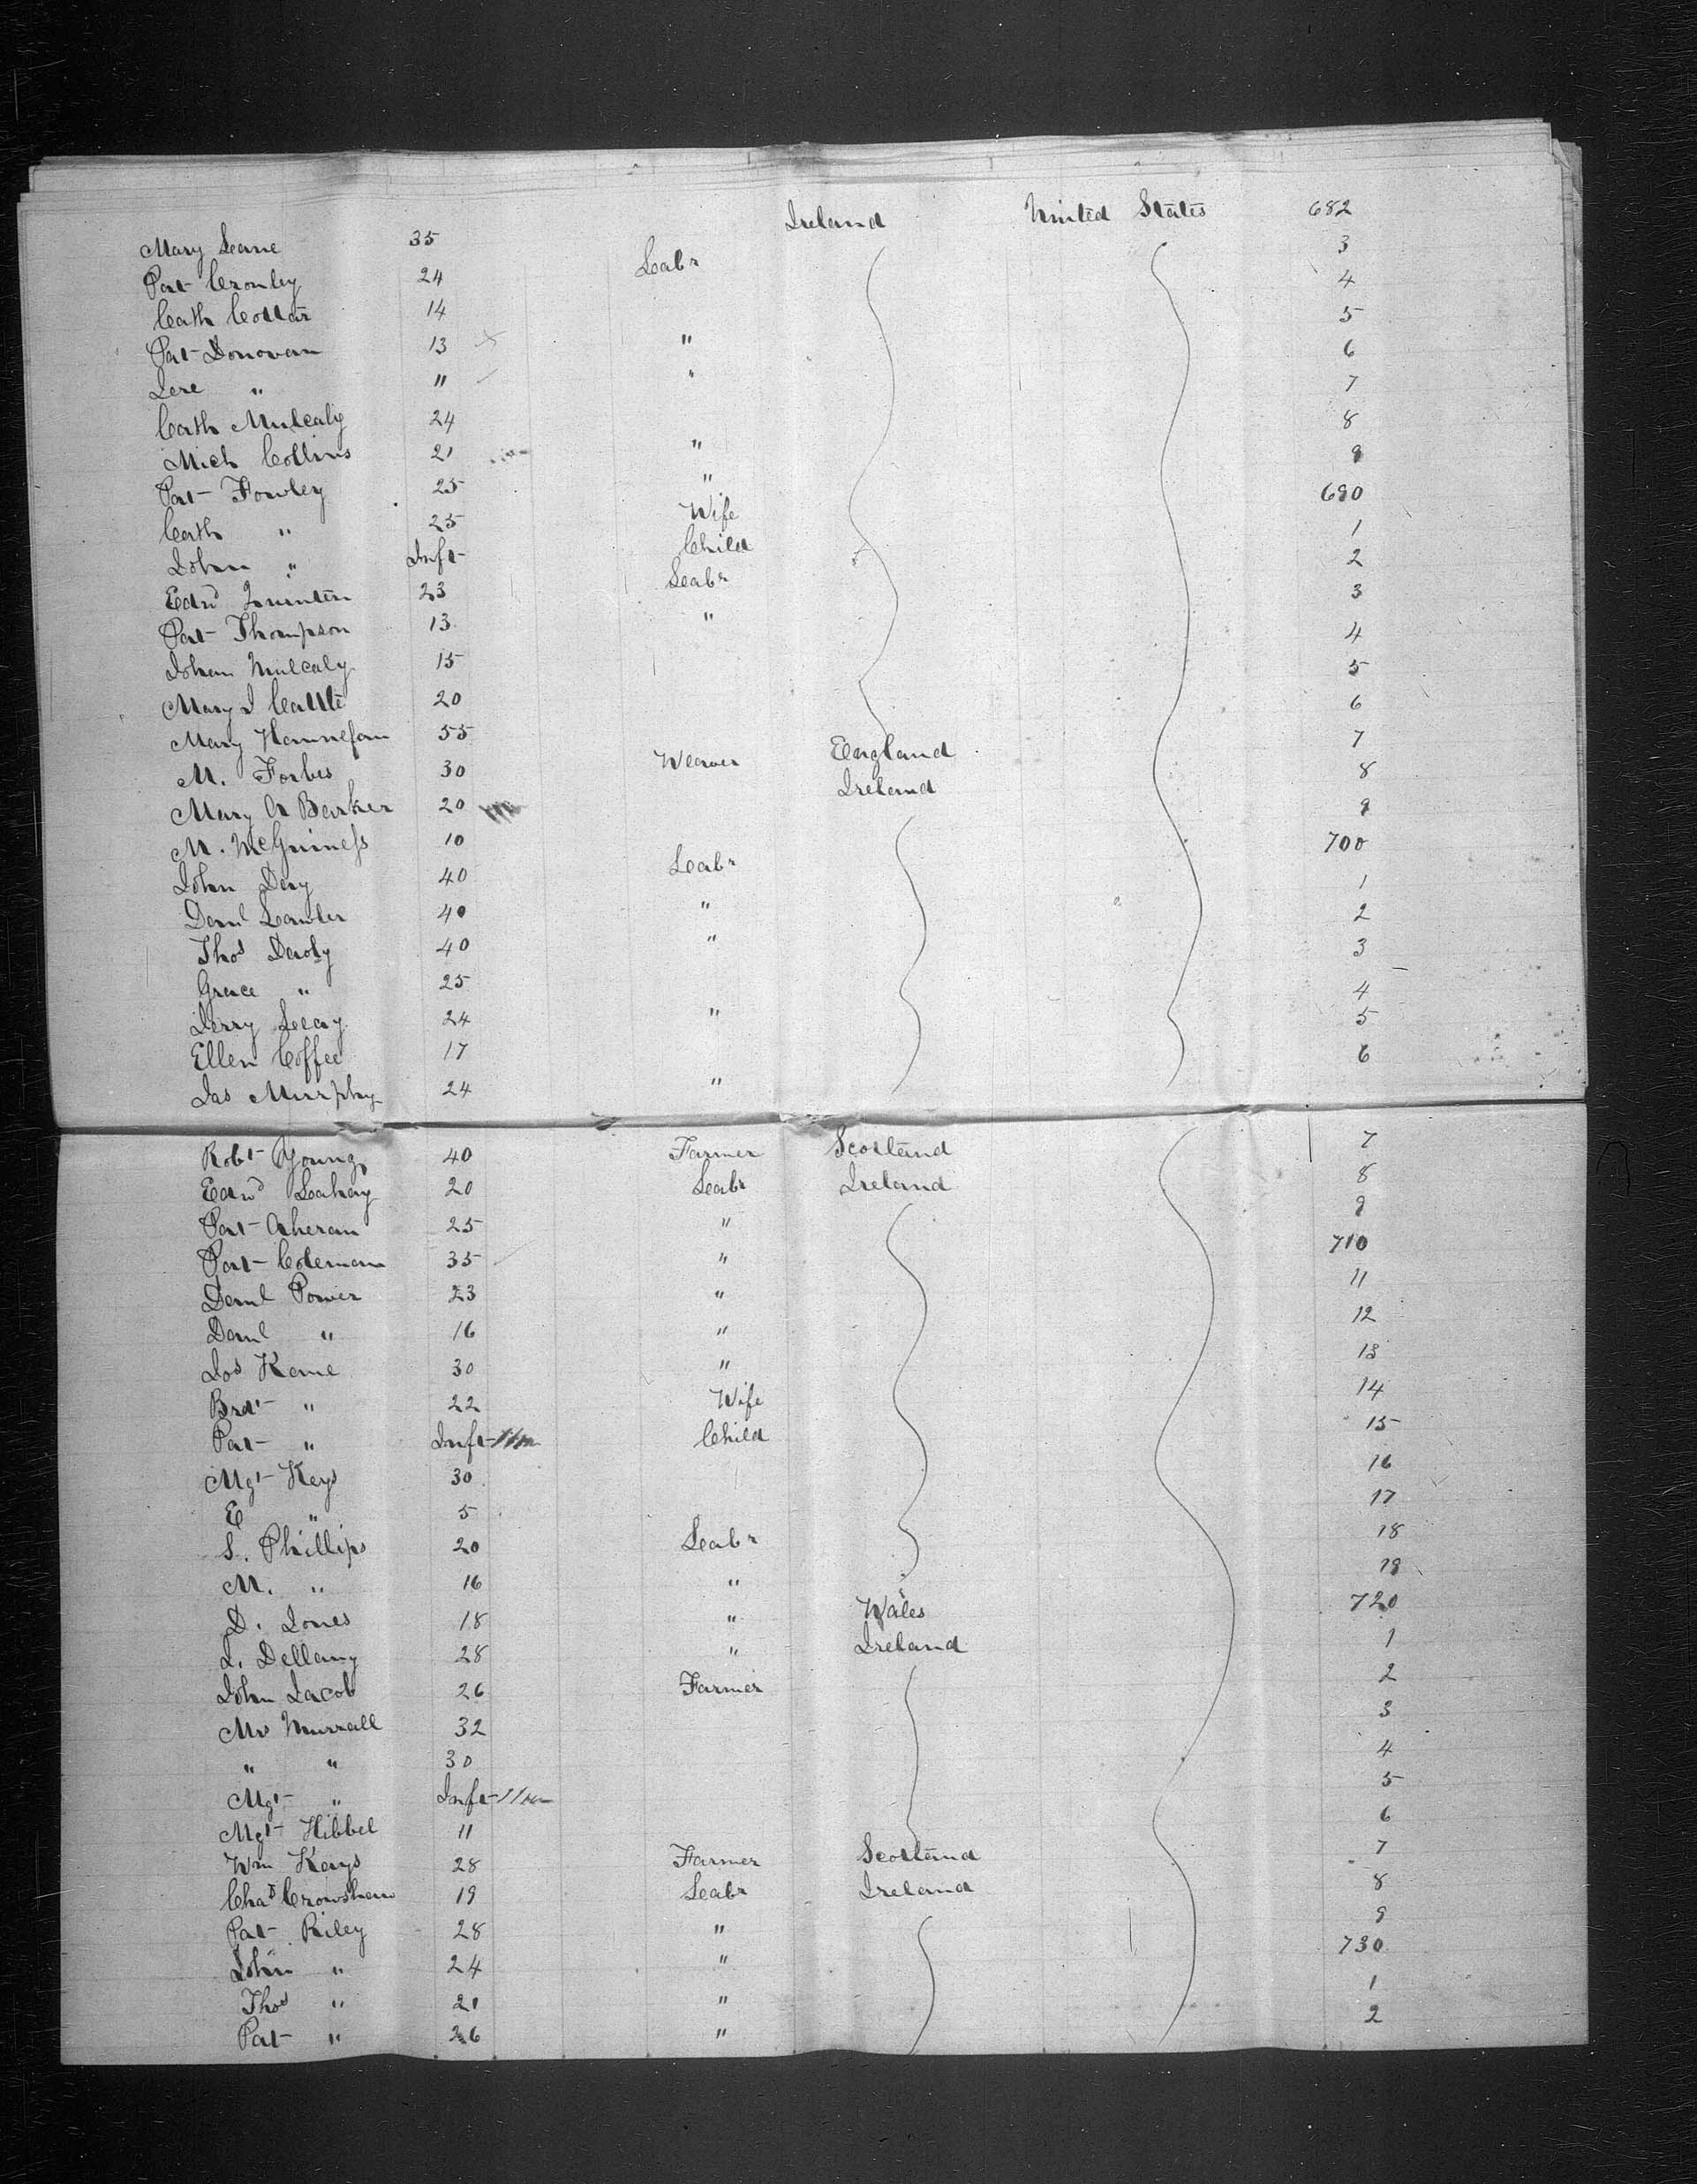 Mary Leane 35 Ireland United States 682
Pat Cronley 24 Labr 3
Cath Cottar 14 4
Pat Donovan 13 " 5
Jere " " " 6
Cath Mulcaly 24 7
Mich Collins 21 " 8
Pat Fowley 25 " 9
Cath " 25 Wife 690
Johan " Inft Child 1
Edwd 23 Labr 2
Pat Thompson 13 " 3
Johan Mulcaly 15 4
Mary J Cattle 20 5
Mary Hannefan 55 6
M. Forbes 30 Weaver England 7
Mary A Barker 20 Ireland 8
M. McGuiness 10 9
John Dey 40 Labr 700
Danl Lawler 40 " 1
Thos Deroty 40 " 2
Grace " 25 3
Jerry Leary 24 " 4
Ellen Coffee 17 5
Jas Murphy 24 " 6
Robt Young 40 Farmer Scotland 7
Edwd Leahay 20 Labr Ireland 8
Pat Aheran 25 " 9
Pat Coleman 35 " 710
Danl Power 23 " 11
Danl " 16 " 12
Jos Kane 30 " 13
Brdt " 22 Wife 14
Pat " Inft 11m Child 15
Mgt Keys 30 16
E " 5 17
S. Phillips 20 Labr 18
M. " 16 " 19
D. Jones 18 " Wales 720
L. Dellany 28 " Ireland 1
John Jacob 26 Farmer 2
Mr Murrall 32 3
" " 30 4
Mgt " Inft 11m 5
Mgt Hibbel 11 6
Wm Kays 28 Farmer Scotland 7
Chas Crowshaw 19 Labr Ireland 8
Pat Riley 28 " 9
John " 24 " 730
Thos " 21 " 1
Pat " 26 " 2